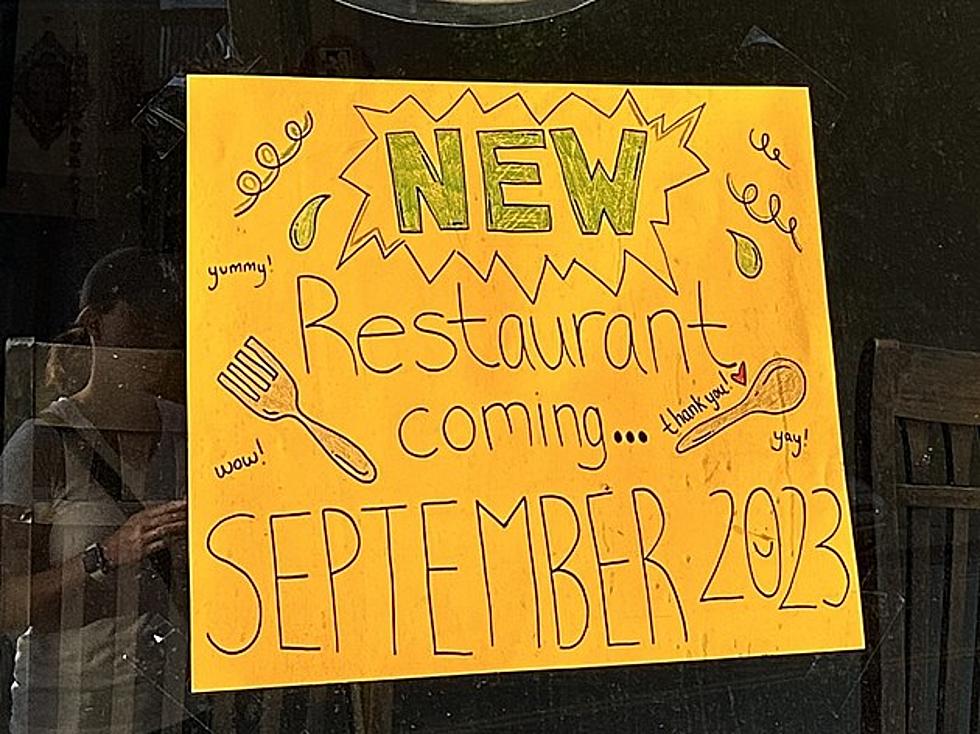 NEW
yummy!
Restaurant
thank you!
coming...
yay!
wow!
SEPTEMBER 2023